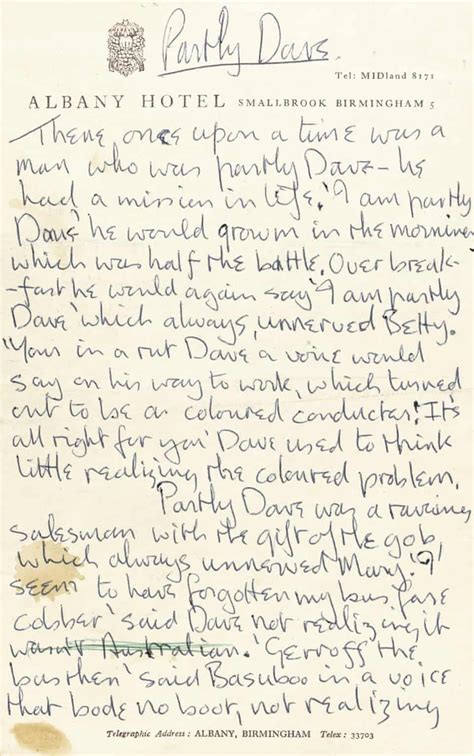 Partly Dave
Tel: MIDland 8171
ALBANY HOTEL SMALLBROOK BIRMINGHAM 5
There once upon a time was a
man who was partly Dave – he
had a mission in life. 'I am partly
Dave' he would growm in the morning
which was half the battle. Over break-
-fast he would again say 'I am partly
Dave' which always unnerved Betty.
'Your in a rut Dave' a voice would
say on his way to work, which turned
out to be a coloured conductor! 'It's
all right for you' Dave used to think
little realizing the coloured problem.
Partly Dave was a raving
salesman with the gift of the gob,
which always unnerved Mary. 'I
seem to have forgotten my bus fare
cobber' said Dave not realizing it
wasn't Australian. 'Gerroff the
bus then' said Basuboo in a voice
that bode no boot, not realizing
Telegraphic Address: ALBANY, BIRMINGHAM Telex: 33703